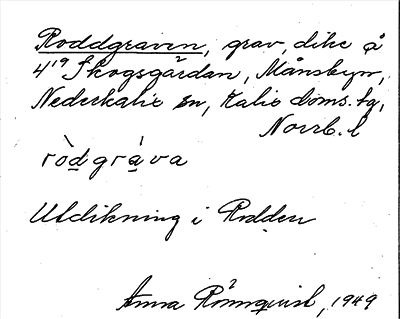 Roddgraven, grav, dike å
4¹⁹ Skogsgårdan, Månsbyn,
Nederkalix sn, Kalix doms. tg,
Norrb. l
ròdgráva
Utdikning i Rodden
Anna Rönnqvist, 1949